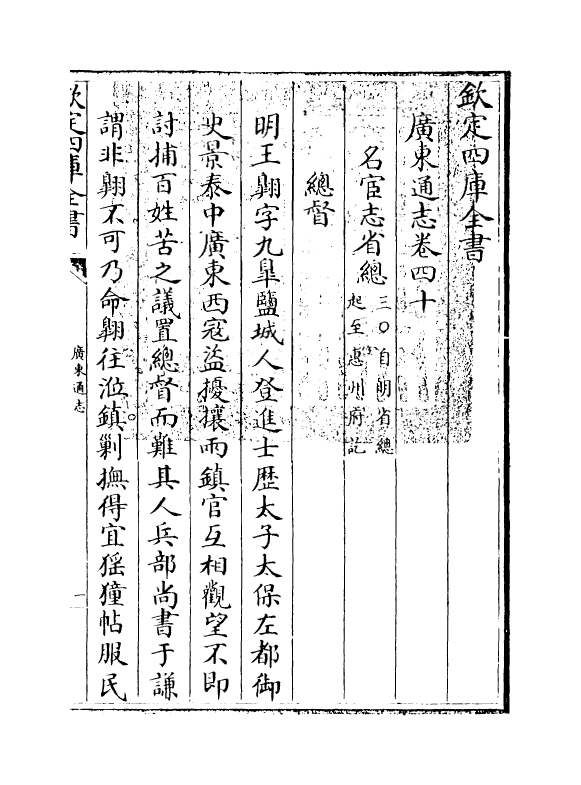 欽定四庫全書
廣東通志卷四十
名宦志省總三〇自明省總
起至惠州府訖
總督
明王翺字九臯鹽城人登進士歴太子太保左都御
史景泰中廣東西寇盜擾攘兩鎮官互相觀望不即
討捕百姓苦之議置總督而難其人兵部尚書于謙
謂非翺不可乃命翺往涖鎮剿撫得宜猺獞帖服民
欽定四庫全書
廣東通志
一